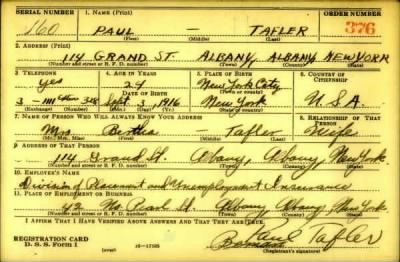 SERIAL NUMBER 1. NAME (Print) ORDER NUMBER
160 PAUL — TAFLER 376
(First) (Middle) (Last)
2. ADDRESS (Print)
114 GRAND ST. ALBANY, ALBANY NEW YORK
(Number and street or R. F. D. number) (Town) (County) (State)
3. TELEPHONE 4. AGE IN YEARS 5. PLACE OF BIRTH 6. COUNTRY OF CITIZENSHIP
Yes 24 New York City
DATE OF BIRTH (Town or county)
3- Sept. 3, 1916 New York U.S.A.
(Mo.) (Day) (Yr.) (State or country)
7. NAME OF PERSON WHO WILL ALWAYS KNOW YOUR ADDRESS 8. RELATIONSHIP OF THAT PERSON
Mrs Bertha — Tafler Wife
(Mr., Mrs., Miss) (First) (Middle) (Last)
9. ADDRESS OF THAT PERSON
114 Grand St. Albany, Albany, New York
(Number and street or R. F. D. number) (Town) (County) (State)
10. EMPLOYER'S NAME
Division of Placement and Unemployment Insurance
11. PLACE OF EMPLOYMENT OR BUSINESS
112 No. Pearl St. Albany, Albany, New York
(Number and street or R. F. D. number) (Town) (County) (State)
I AFFIRM THAT I HAVE VERIFIED ABOVE ANSWERS AND THAT THEY ARE TRUE.
REGISTRATION CARD
D. S. S. Form 1 (over) 16—17105 Paul Tafler
(Registrant's signature)